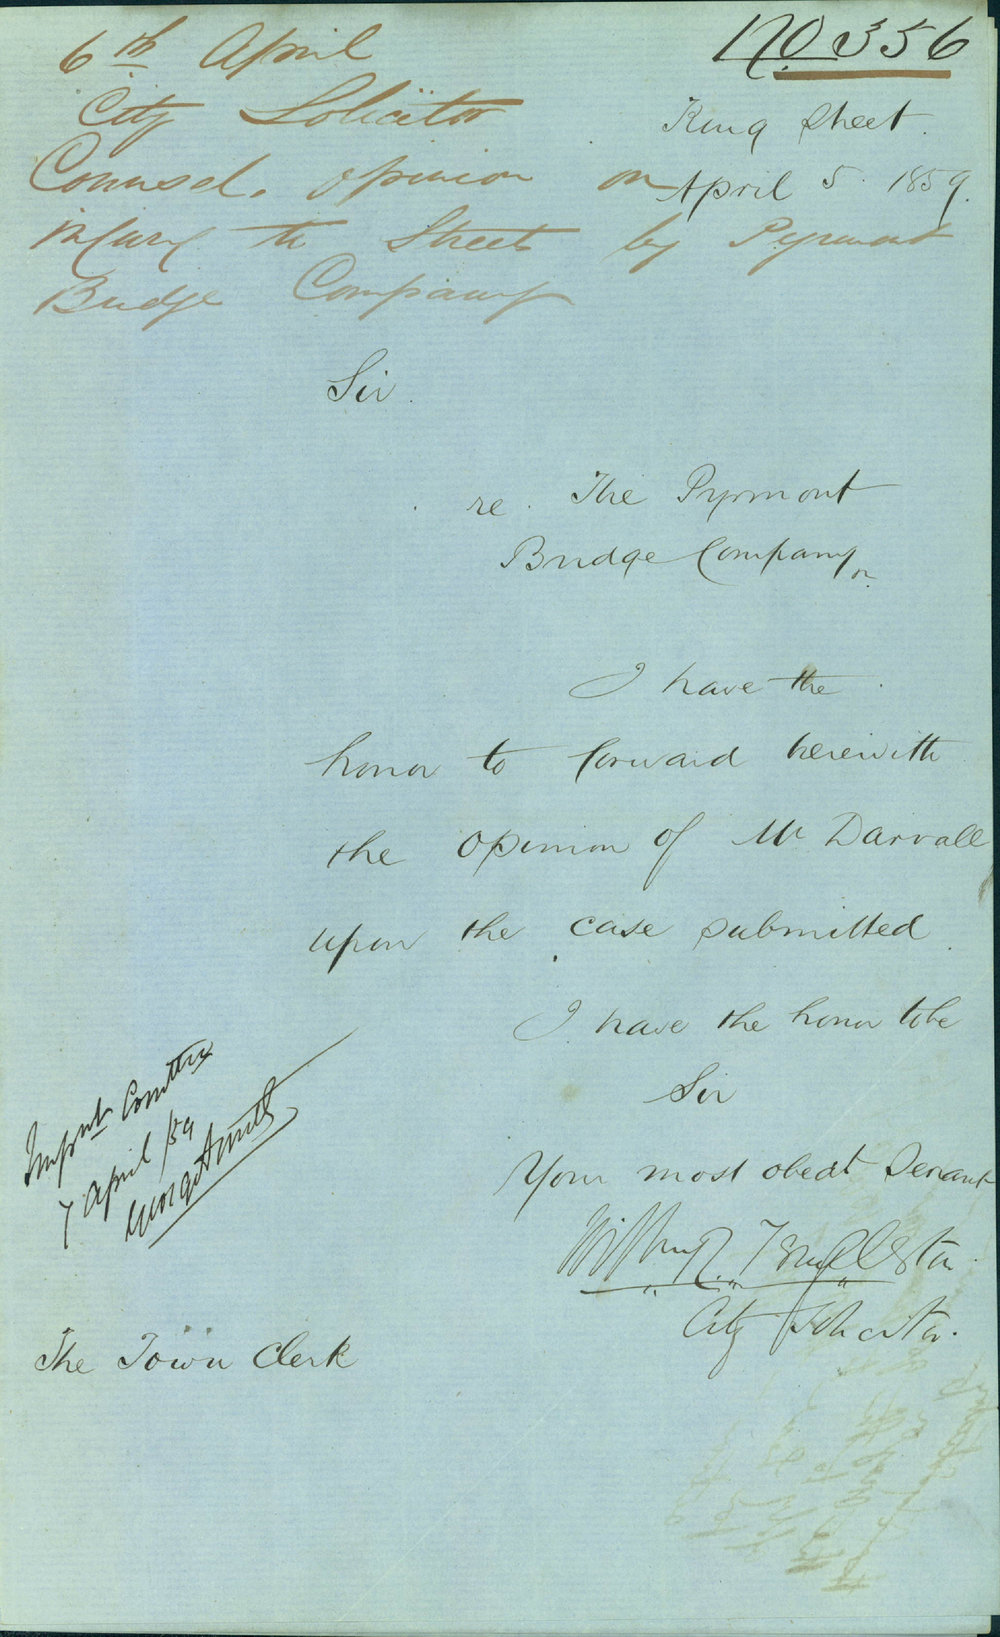 No 356
6th April
City Solicitor
Counsel. opinion on
injury to Street by Pyrmont
Bridge Company
King Street.
April 5. 1859.
Sir.
re. The Pyrmont
Bridge Company
I have the
honor to forward herewith
the opinion of Mr Darvall
upon the case submitted.
I have the honor to be
Sir
Your most obedt Servant
City Solicitor.
Impvt Comttee
7 April /59
George Smith
The Town Clerk